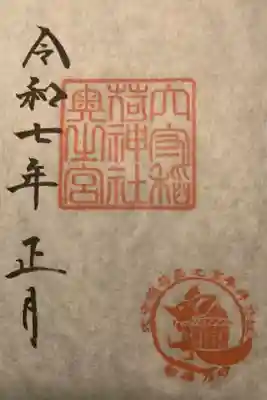 穴守稲
荷神社
奥之宮
令和七年 正月